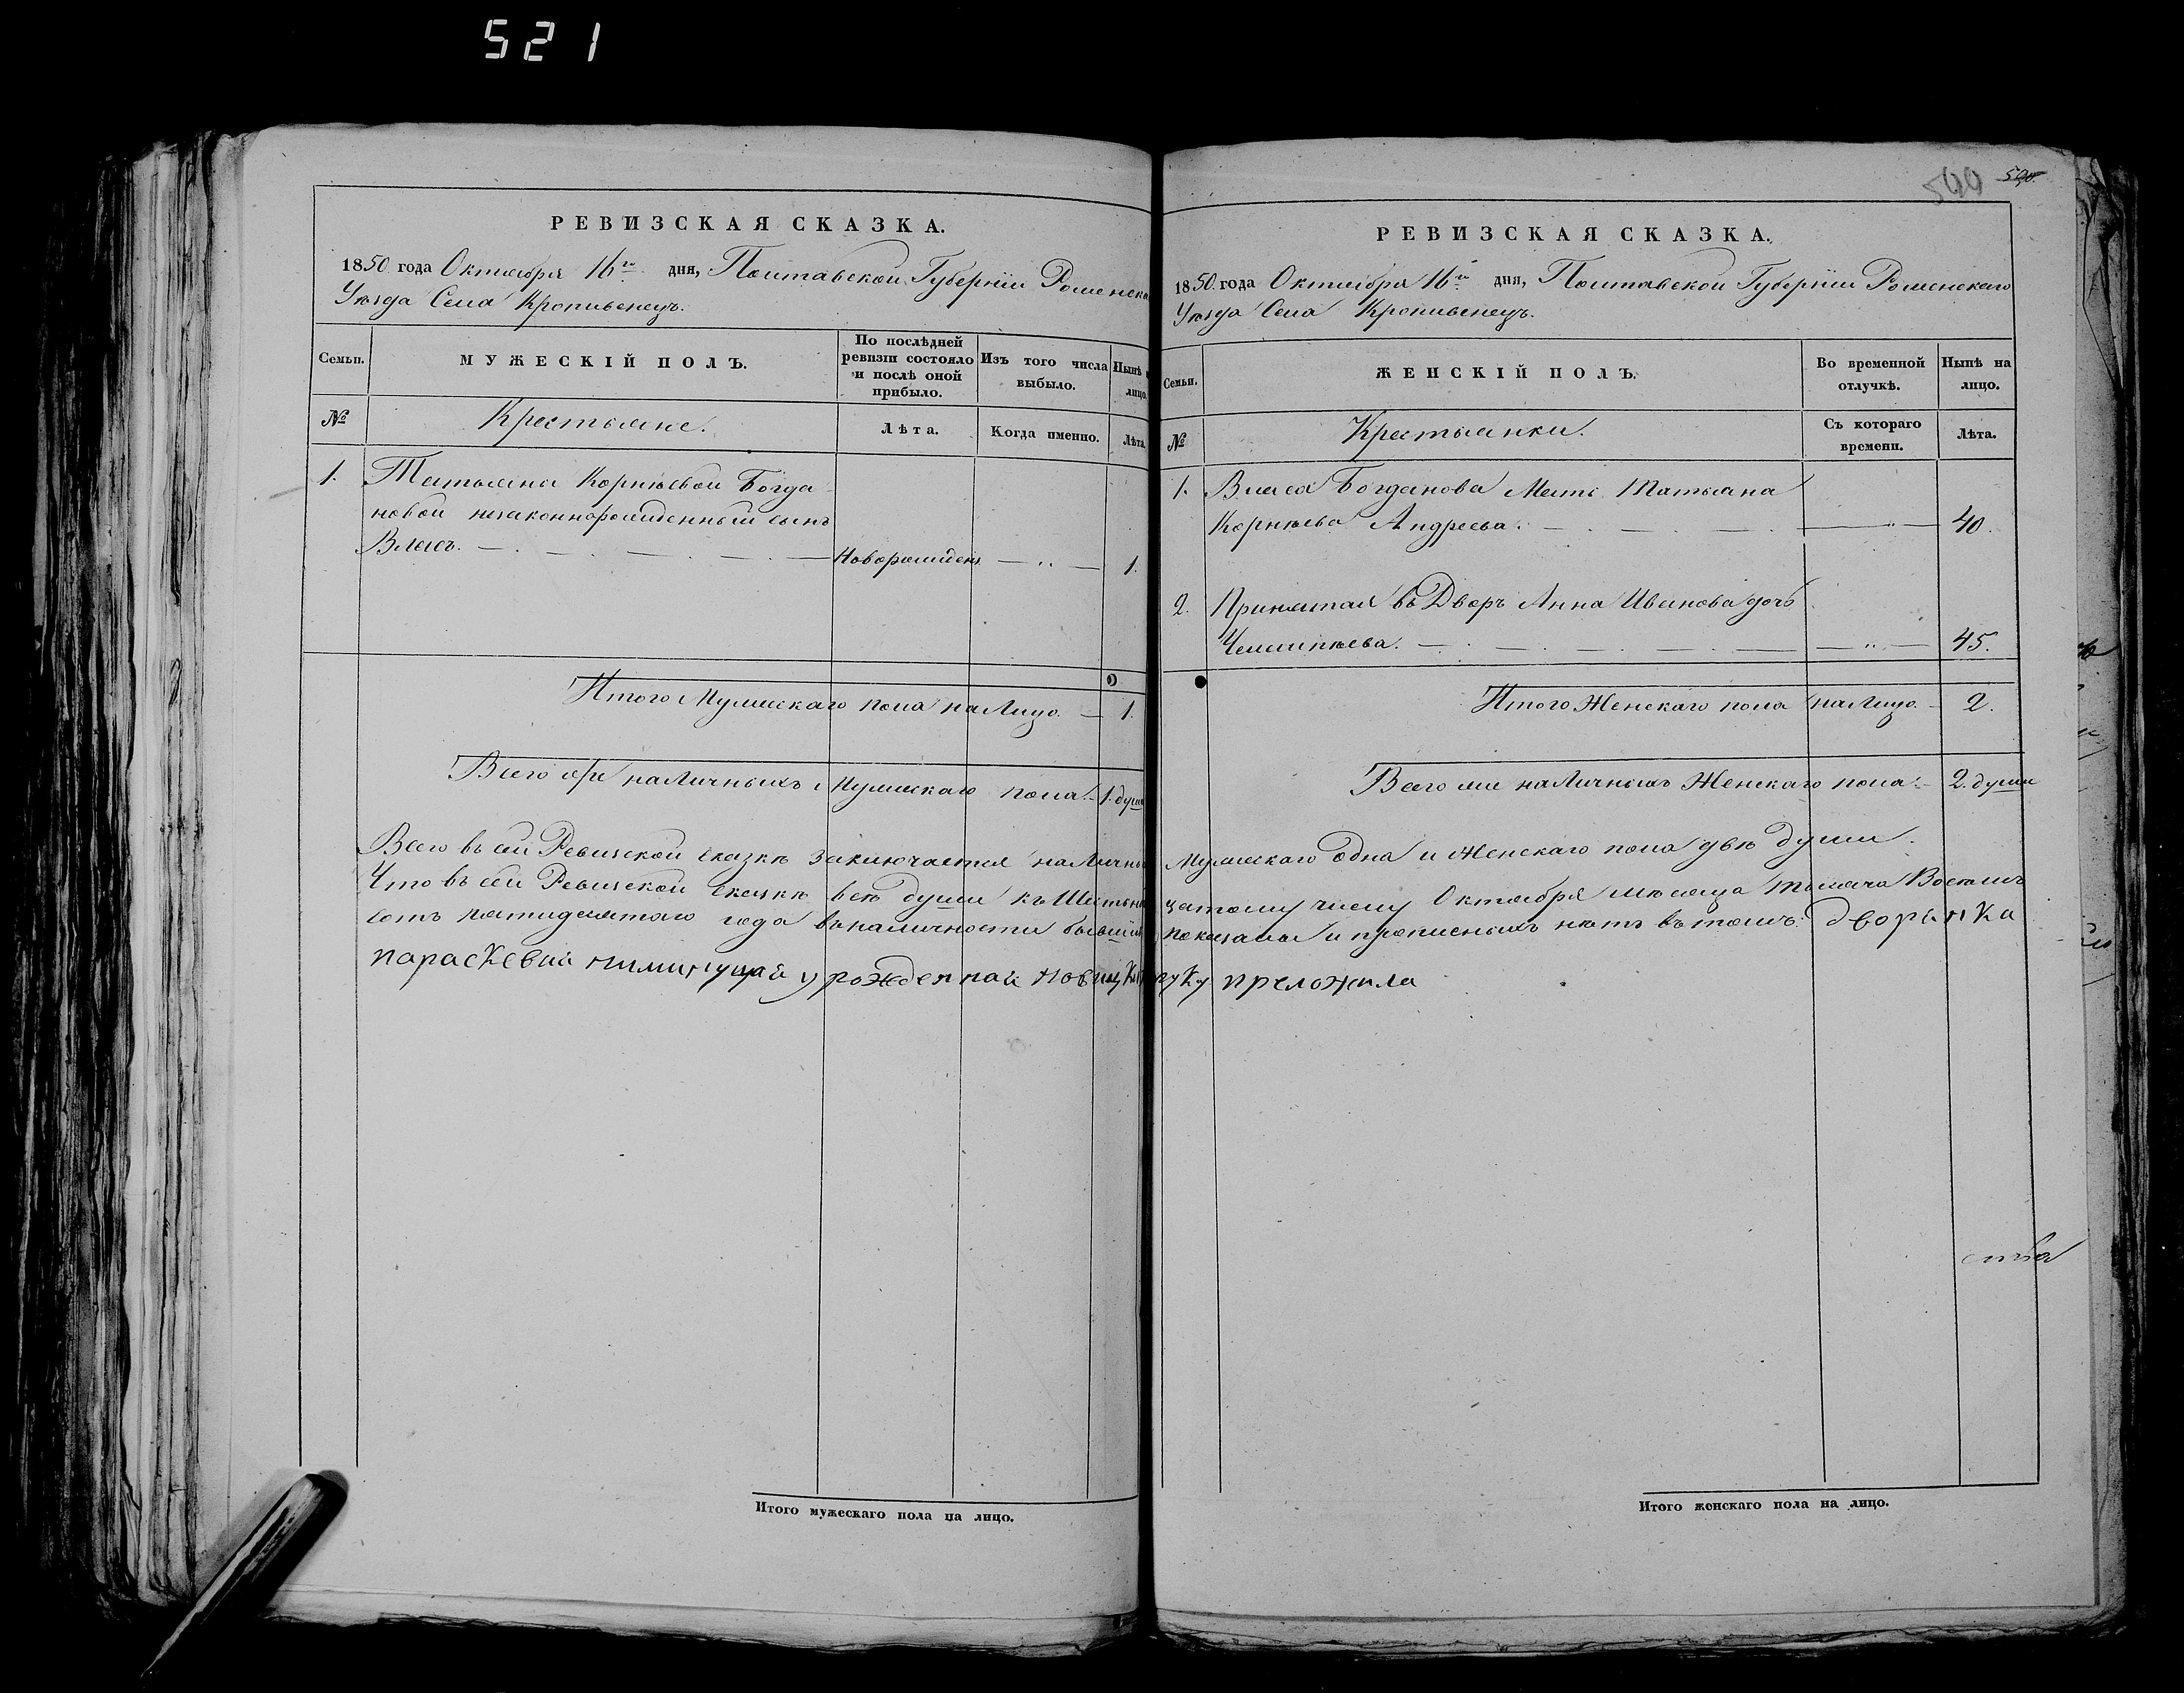 521
РЕВИЗСКАЯ СКАЗКА.
1850 года Октября 16го дня, Полтавской Губерніи Роменска
Уѣзда Села Кропивенецъ.
Семьи.
МУЖЕСКІЙ ПОЛЪ.
По послѣдней ревизіи состояло и послѣ оной прибыло.
Изъ того числа выбыло.
Нынѣ лицо.
№
Крестьяне.
Лѣта.
Когда именно.
Лѣта.
1. Татьяны Корнѣевой Богда
новой незаконнорожденный сынъ
Власъ. Новорожденъ 1.
Итого Мужескаго пола на Лицо 1.
Всего же наличныхъ Мужескаго пола 1. душ
Всего въ сей Ревизской сказкѣ заключается наличны
Что въ сей Ревизской сказкѣ всѣ души къ Шестьна
сотъ пятидесятого года въ наличности бывшія
параскевия урожденная
Итого мужескаго пола на лицо.
500 500.
РЕВИЗСКАЯ СКАЗКА.
1850 года Октября 16го дня, Полтавской Губерніи Роменскаго
Уѣзда Села Кропивенецъ.
Семьи.
ЖЕНСКІЙ ПОЛЪ.
Во временной отлучкѣ.
Нынѣ на лицо.
№
Крестьянки.
Съ котораго времени.
Лѣта.
1. Власа Богданова Мать Татьяна
Корнѣева Андреева. 40.
2. Принятая въ Дворъ Анна Иванова дочь
45.
Итого Женскаго пола на Лицо. 2.
Всего же наличныхъ Женскаго пола 2. души
Мужескаго одна и Женскаго пола двѣ души.
цатому числу Октября мѣсяца тысяча Восемь
показаны и прописныхъ нѣтъ въ томъ: дворянка
руку преложила
ства
Итого женскаго пола на лицо.